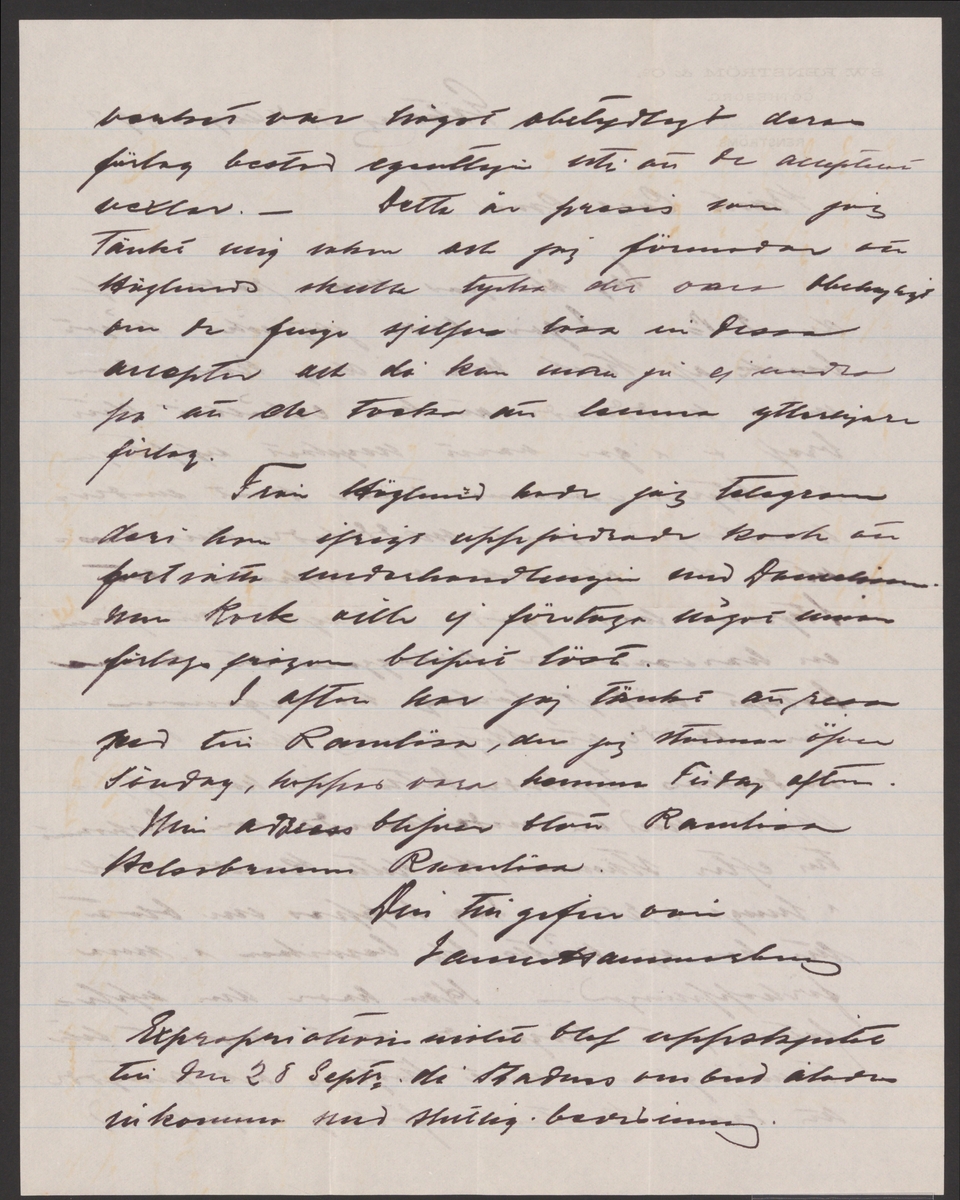 bankes var något obetydligt deras
förlag bestod egentligen uti att de accepterat
vexlar. — Detta är precis som jag
tänkt mig saken och jag förmodar att
Höglunds skulle tycka det vara obehagligt
om de finge sjelfva lösa in dessa
accepter och då kan man ju ej undra
på att de tveka att lemna ytterligare
förlag.
Från Höglund hade jag telegram
deri han ifrigt uppfordrade Kock att
fortsätta underhandlingen med Danielsson.
men Kock ville ej företaga något innan
förlags frågan blifvit löst.
I afton har jag tänkt att resa
ned till Ramlösa, der jag stannar öfver
Söndag, hoppas vara hemma Tisdag afton.
Min adress blifver blott Ramlösa
Helsobrunn Ramlösa.
Din tillgifne vän
James Hammarberg
Expropriations mötet blef uppskjutet
till den 28 Septr, då Stadens ombud
inkomma med skriftlig bevisning.